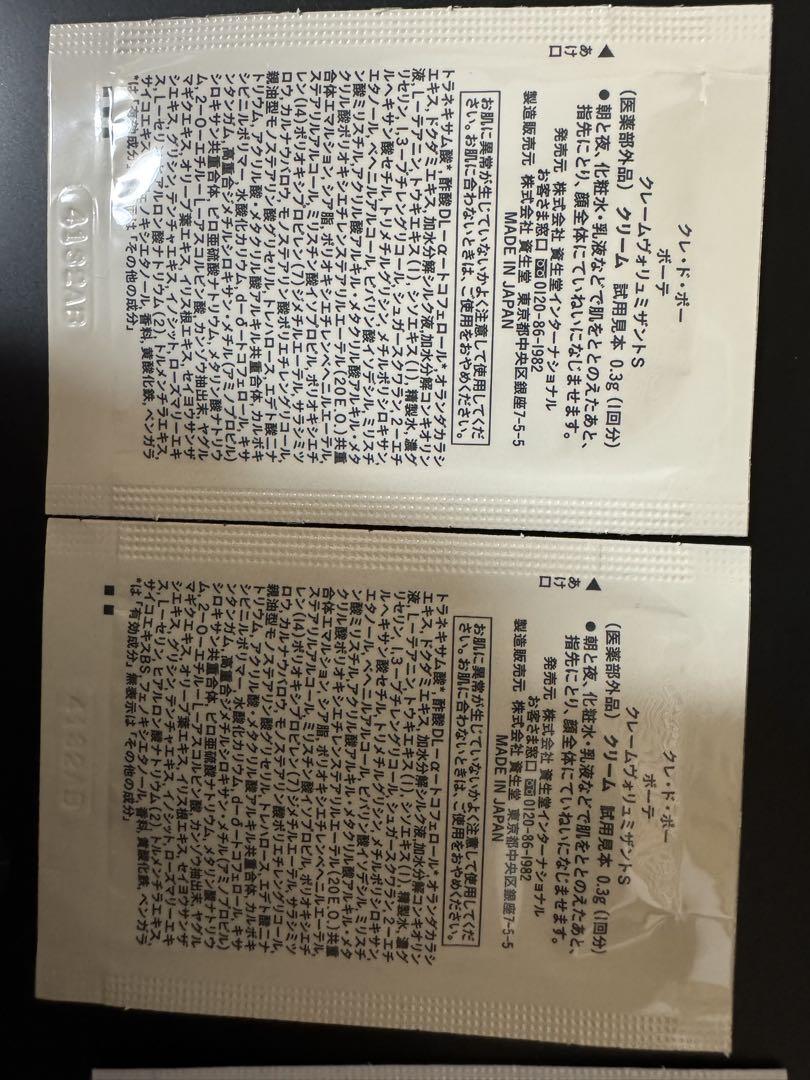 クレ・ド・ポー
ボーテ
クレームヴォリュミザントS
(医薬部外品) クリーム 試用見本 0.3g (1回分)
●朝と夜、化粧水・乳液などで肌をととのえたあと、
指先にとり、顔全体にていねいになじませます。
発売元 株式会社 資生堂インターナショナル
お客さま窓口 0120-86-1982
製造販売元 株式会社 資生堂 東京都中央区銀座7-5-5
MADE IN JAPAN
お肌に異常が生じていないかよく注意して使用してくだ
さい。お肌に合わないときは、ご使用をおやめください。
トラネキサム酸*,酢酸DL-α-トコフェロール*,オランダカラシ
エキス,ドクダミエキス,加水分解シルク液,加水分解コンキオリン
液,L-テアニン,トウキエキス(1),シソエキス(1),精製水,濃グ
リセリン,1,3-ブチレングリコール,シュガースクワラン,2-エチ
ルヘキサン酸セチル,トリメチルグリシン,メチルポリシロキサン,
エタノール,ベヘニルアルコール,ピバリン酸イソデシル,ミリスチ
ン酸ミリスチル,アクリル酸アルキル・メタクリル酸アルキル・メタ
クリル酸ポリオキシエチレンステアリルエーテル(20E.O.)共重
合体エマルション,シア脂,ポリオキシエチレンベヘニルエーテル,
ステアリルアルコール,ミリスチン酸イソプロピル,ポリオキシエチ
レン(14)ポリオキシプロピレン(7)ジメチルエーテル,サラシミツ
ロウ,カルナウバロウ,モノステアリン酸ポリエチレングリコール,
親油型モノステアリン酸グリセリル,トレハロース,エデト酸二ナ
トリウム,アクリル酸・メタクリル酸アルキル共重合体,カルボキ
シビニルポリマー,水酸化カリウム,d-δ-トコフェロール,キサ
ンタンガム,高重合ジメチルシロキサン・メチル(アミノプロピル)
シロキサン共重合体,ピロ亜硫酸ナトリウム,メタリン酸ナトリウ
ム,2-O-エチル-L-アスコルビン酸,カンゾウ抽出末,ヤグル
マギクエキス,オリーブ葉エキス,イリス根エキス,セイヨウサンザ
シエキス,グリシン,テンチャエキス,イノシット,ローズマリーエキ
ス,L-セリン,ヒアルロン酸ナトリウム(2),トルメンチラエキス,
サイコエキス フェノキシエタノール,香料,黄酸化鉄,ベンガラ
*は「有効成分」 は「その他の成分」
あけ口
4132AB
クレ・ド・ポー
ボーテ
クレームヴォリュミザントS
(医薬部外品) クリーム 試用見本 0.3g (1回分)
●朝と夜、化粧水・乳液などで肌をととのえたあと、
指先にとり、顔全体にていねいになじませます。
発売元 株式会社 資生堂インターナショナル
お客さま窓口 0120-86-1982
製造販売元 株式会社 資生堂 東京都中央区銀座7-5-5
MADE IN JAPAN
お肌に異常が生じていないかよく注意して使用してくだ
さい。お肌に合わないときは、ご使用をおやめください。
トラネキサム酸*,酢酸DL-α-トコフェロール*,オランダカラシ
エキス,ドクダミエキス,加水分解シルク液,加水分解コンキオリン
液,L-テアニン,トウキエキス(1),シソエキス(1),精製水,濃グ
リセリン,1,3-ブチレングリコール,シュガースクワラン,2-エチ
ルヘキサン酸セチル,トリメチルグリシン,メチルポリシロキサン,
エタノール,ベヘニルアルコール,ピバリン酸イソデシル,ミリスチ
ン酸ミリスチル,アクリル酸アルキル・メタクリル酸アルキル・メタ
クリル酸ポリオキシエチレンステアリルエーテル(20E.O.)共重
合体エマルション,シア脂,ポリオキシエチレンベヘニルエーテル,
ステアリルアルコール,ミリスチン酸イソプロピル,ポリオキシエチ
レン(14)ポリオキシプロピレン(7)ジメチルエーテル,サラシミツ
ロウ,カルナウバロウ,モノステアリン酸ポリエチレングリコール,
親油型モノステアリン酸グリセリル,トレハロース,エデト酸二ナ
トリウム,アクリル酸・メタクリル酸アルキル共重合体,カルボキ
シビニルポリマー,水酸化カリウム,d-δ-トコフェロール,キサ
ンタンガム,高重合ジメチルシロキサン・メチル(アミノプロピル)
シロキサン共重合体,ピロ亜硫酸ナトリウム,メタリン酸ナトリウ
ム,2-O-エチル-L-アスコルビン酸,カンゾウ抽出末,ヤグル
マギクエキス,オリーブ葉エキス,イリス根エキス,セイヨウサンザ
シエキス,グリシン,テンチャエキス,イノシット,ローズマリーエキ
ス,L-セリン,ヒアルロン酸ナトリウム(2),トルメンチラエキス,
サイコエキスBS,フェノキシエタノール,香料,黄酸化鉄,ベンガラ
*は「有効成分」無表示は「その他の成分」
あけ口